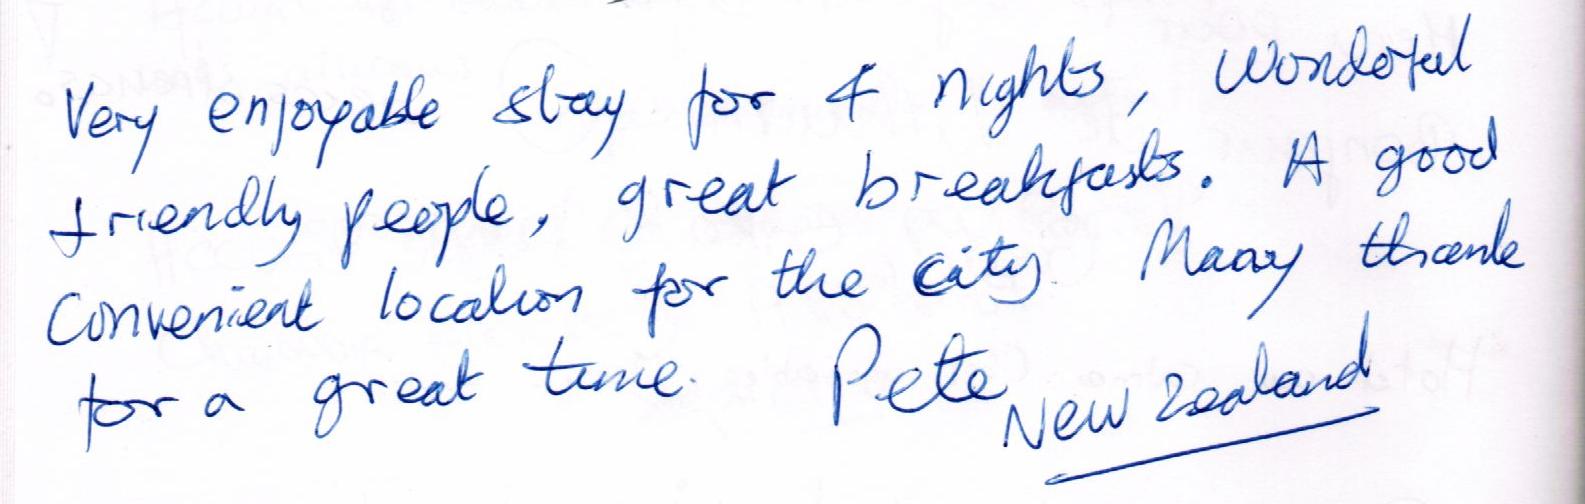 Very enjoyable stay for 4 nights, Wonderful
friendly people, great breakfasts. A good
Convenient location for the city. Many thanks
for a great time. Pete
New Zealand